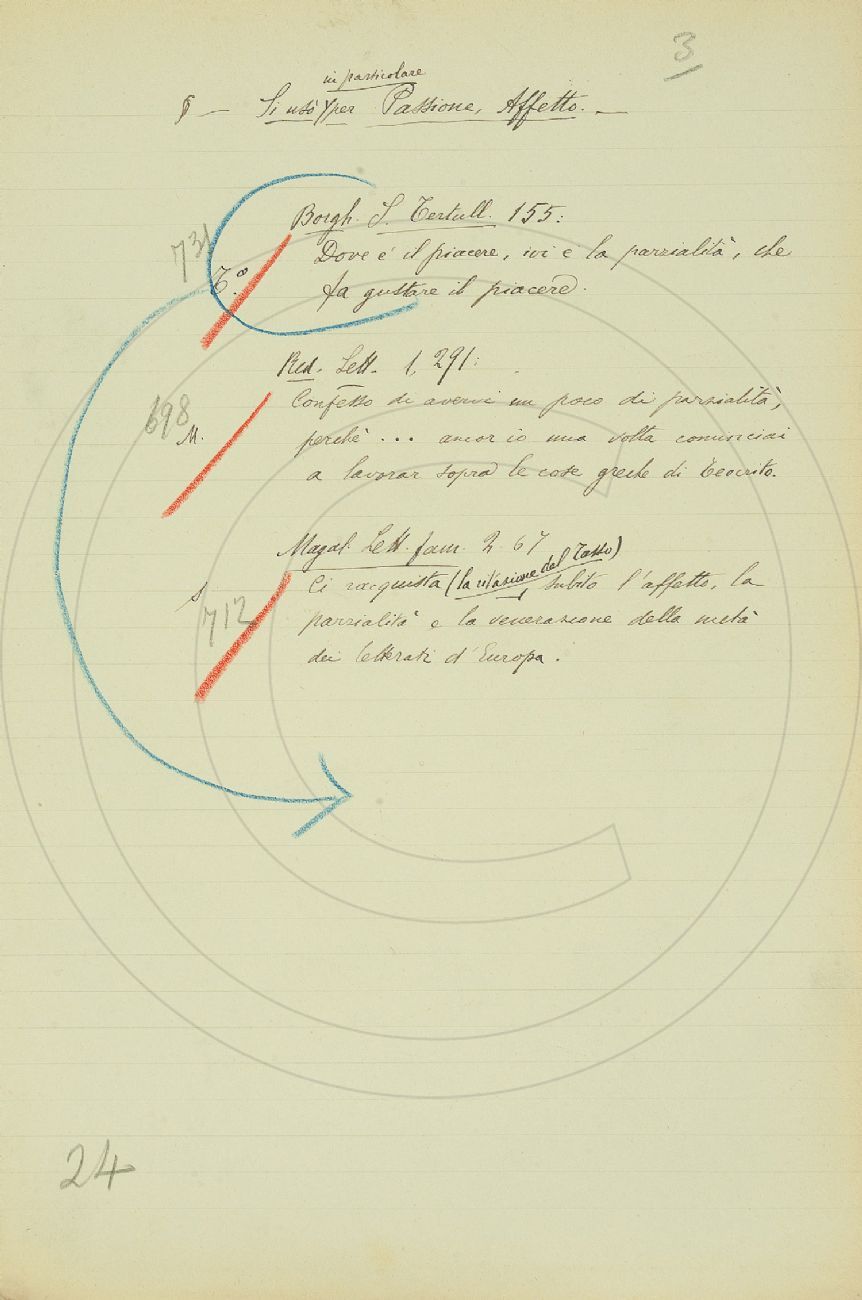 3
in particolare
§ — Si usò per Passione, Affetto. —
Borgh. S. Tertull. 155:
731
Dove è il piacere, ivi è la parzialità, che
T.º
fa gustare il piacere.
Red. Lett. 1, 291:
698
Confesso di averci un poco di parzialità,
M.
perchè ... ancor io una volta cominciai
a lavorar sopra le cose greche di Teocrito.
Magal. Lett. fam. 2. 67
Ci racquista (la                del Tasso), subito l'affetto, la
712
parzialità e la venerazione della metà
dei letterati d'Europa.
24